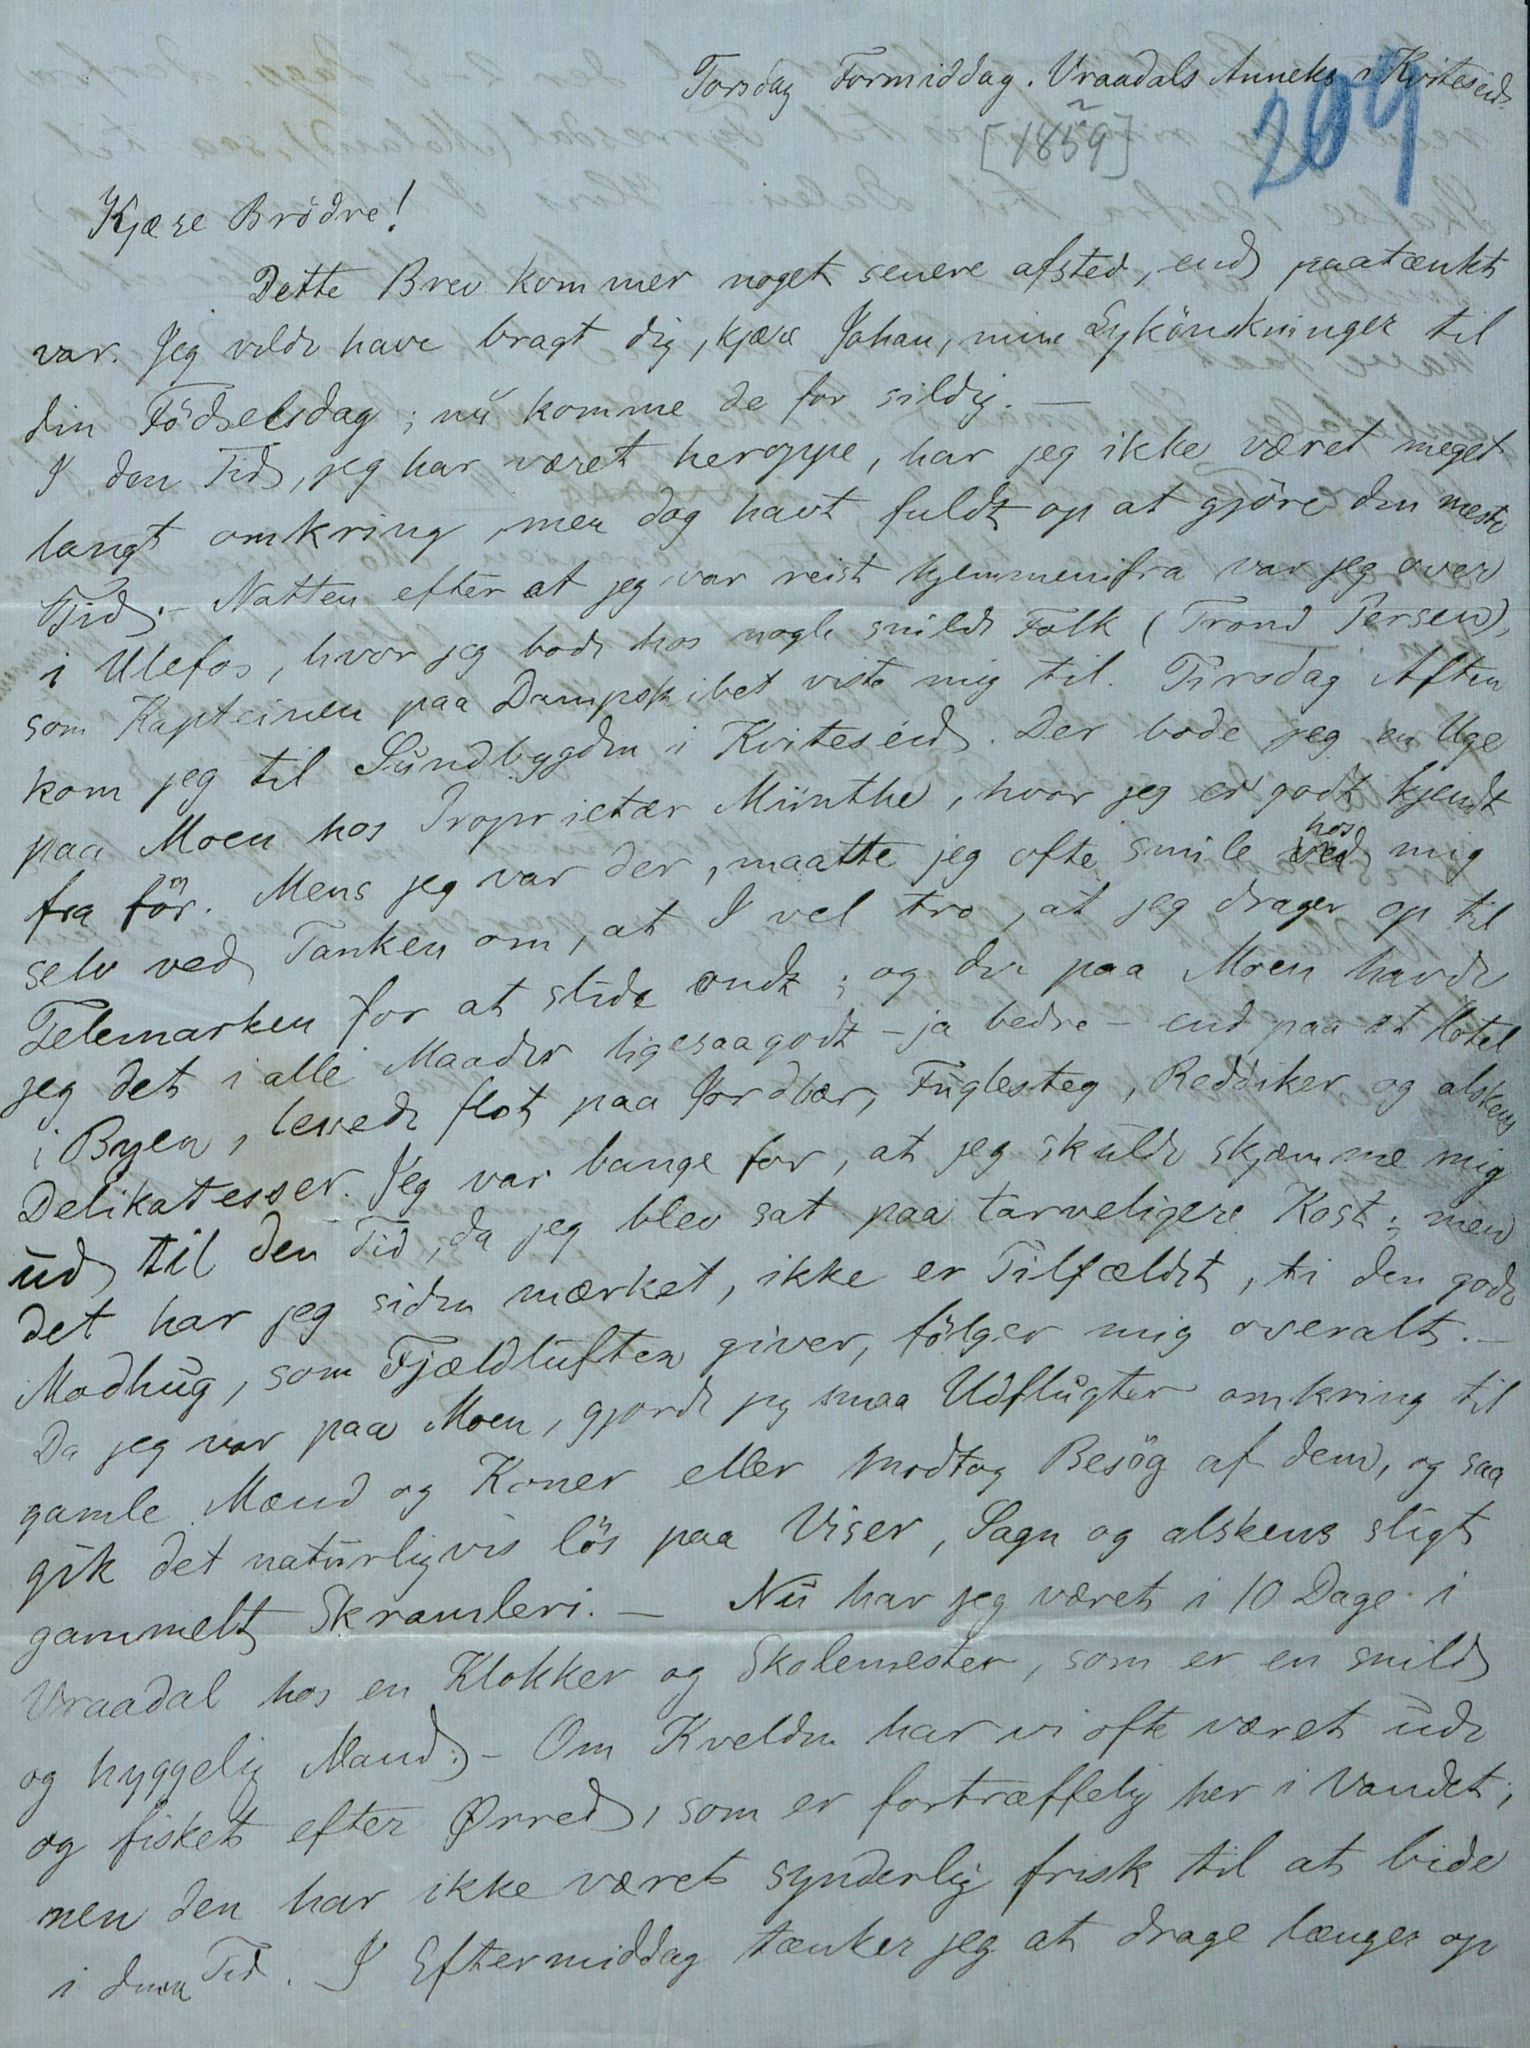 Torsdag Formiddag. Vraadals Anneks i Kviteseid.
[1859]
209
Kjære Brödre!
Dette Brev kommer noget senere afsted, end paatænkt
var. Jeg vilde have bragt dig, kjære Johan, mine Lykönskninger til
din Födselsdag; nu komme de for sildig. —
I den Tid, jeg har været heroppe, har jeg ikke været meget
langt omkring, men dog havt fuldt op at gjöre den meste
Tid. – Natten efter at jeg var reist hjemmenifra var jeg over
i Ulefos, hvor jeg bode hos nogle snilde Folk (Trond Persen),
som Kapteinen paa Dampskibet viste mig til. Tirsdag Aften
kom jeg til Sundbygden i Kviteseid. Der bode jeg en Uge
paa Moen hos Proprietær Münthe, hvor jeg er godt kjendt
fra för. Mens jeg var der, maatte jeg ofte smile ved hos mig
selv ved Tanken om, at I vel tro, at jeg drager op til
Telemarken for at slide ondt; og der paa Moen havde
jeg det i alle Maader ligesaagodt – ja bedre – end paa et Hotel
i Byen, levede flot paa Jordbær, Fuglesteg, Reddiker og alskens
Delikatesser. Jeg var bange for, at jeg skulde skjæmme mig
ud til den Tid, da jeg blev sat paa tarveligere Kost; men
det har jeg siden mærket, ikke er Tilfældet, ti den gode
Madhug, som Fjældluften giver, fölger mig overalt. –
Da jeg var paa Moen, gjorde jeg smaa Udflugter omkring til
gamle Mænd og Koner eller modtog Besög af dem, og saa
gik det naturligvis lös paa Viser, Sagn og alskens sligt
gammelt Skramleri. — Nu har jeg været i 10 Dage i
Vraadal hos en Klokker og Skolemester, som er en snild
og hyggelig Mand. – Om Kvelden har vi ofte været ude
og fisket efter Ørred, som er fortræffelig her i Vandet;
men den har ikke været synderlig frisk til at bide
i denne Tid. I Eftermiddag tænker jeg at drage længer op